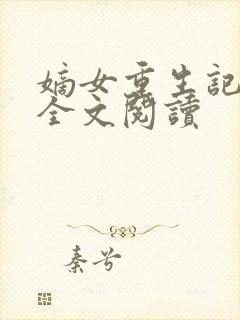 嫡女重生記
全文閱讀
秦兮